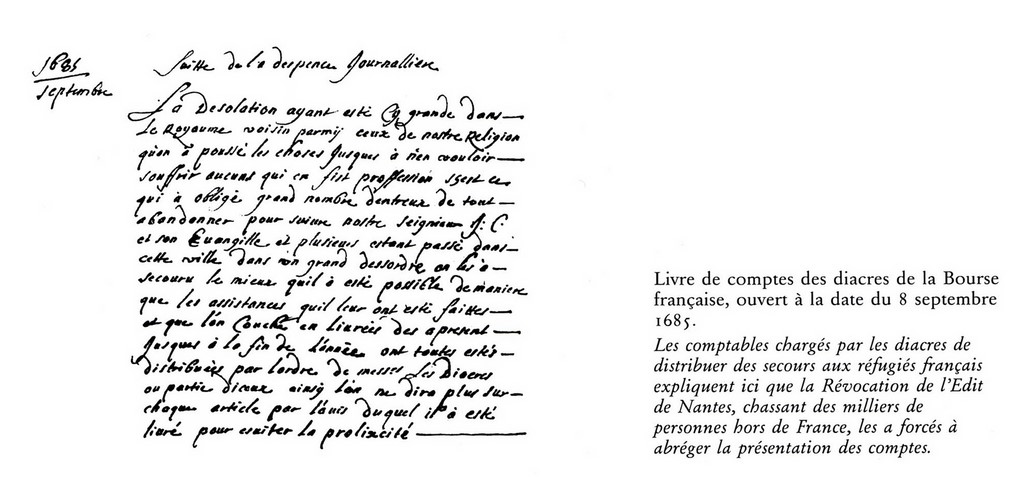 1685
septembre
Suitte de la despence Journalliere
La Desolation ayant esté Sy grande dans
Le Royaume voisin parmij ceux de nostre Religion
qu'on à poussé les choses Jusques à n'en vouloir
souffrir aucuns qui en fist proffession s'est ce
qui à obligé grand nombre d'entreux de tout
abandonner pour suivre nostre seigneur J: C.
et son Euangille et plusieurs estant passé dans
cette ville dans un grand dessordre on les a
secouru le mieux quil à esté possible de maniere
que les assistances quil leur ont esté faittes
et que l'on Couche en Liurées des apresent
Jusques à la fin de L'année ont toutes estés
distribuées par Lordre de messes. Les Diacres
ou partie diceux ainsy L'on ne dira plus sur
chaque article par L'auis duquel il à esté
liuré pour esuiter La prolixcité
Livre de comptes des diacres de la Bourse
française, ouvert à la date du 8 septembre
1685.
Les comptables chargés par les diacres de
distribuer des secours aux réfugiés français
expliquent ici que la Révocation de l'Edit
de Nantes, chassant des milliers de
personnes hors de France, les a forcés à
abréger la présentation des comptes.